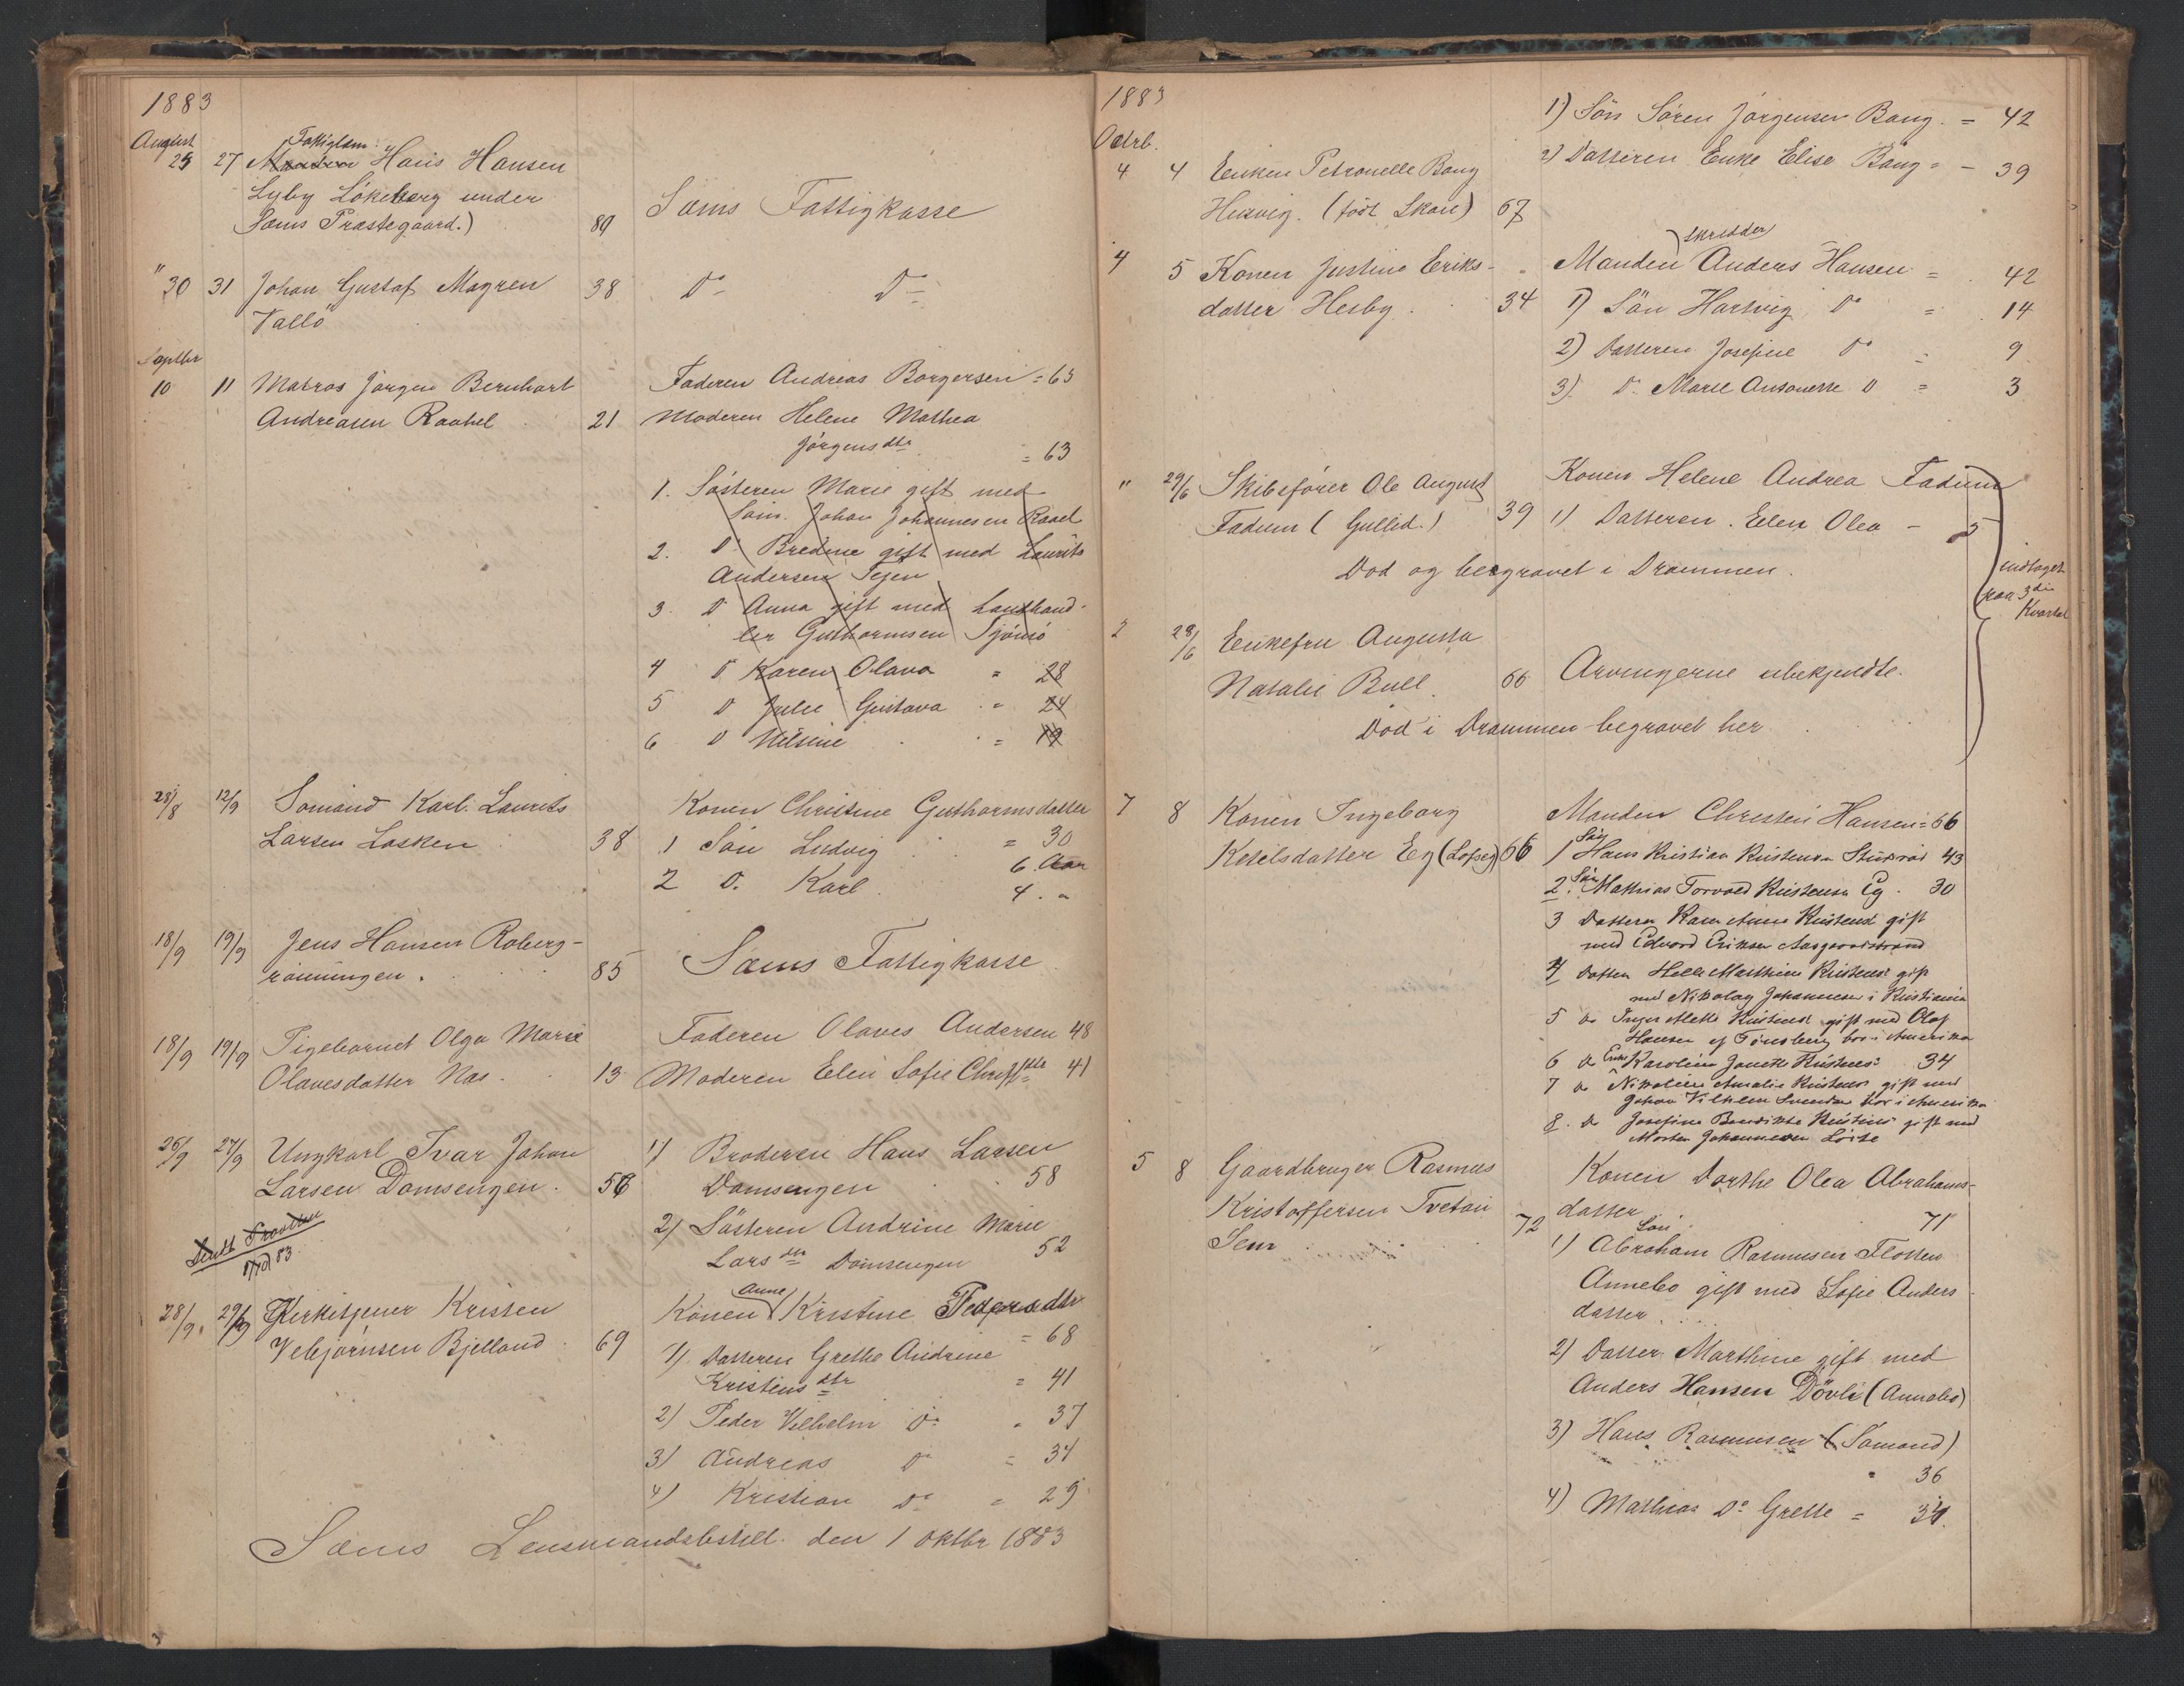 1883
August
25 27 Fattiglem Hans Hansen
Lyby Lökeberg under
Sæms Præstegaard.) 89 Sæms Fattigkasse
" 30 31 Johan Gustaf Magren 38 Do Do
Vallö
Septbr
10 11 Matros Jørgen Bernhart Faderen Andreas Borgersen = 63
Andreasen Raahel 21 Moderen Helene Mathea
Jörgensdtr = 63
1. Søsteren Marie gift med
Søm. Johan Johannesen Raael
2. Do Bredine gift med Laurits
Andersen Tejen
3. Do Anna gift med Landhand-
ler Guthormsen Tjömö
4 Do Karen Olava = 28
5 D Julie Gustava " 24
6 D Nilsine = 19
28/8 12/9 Sömand Karl Laurits Konen Christine Guthormsdatter
Larsen Lasken 38 = 30
1 Sön Ludvig 6 Aar
2 D. Karl 4 . "
18/9 19/9 Jens Hansen Roberg-
rönningen. 85 Sæms Fattigkasse
18/9 19/9 Pigebarnet Olga Marie Faderen Olaves Andersen 48
Olavesdatter Næs 13 Moderen Elen Sofie Christdtr 41
26/9 27/9 Ungkarl Ivar Johan 1) Broderen Hans Larsen
Larsen Domsengen. 56 Domsengen 58
2) Søsteren Andrine Marie
Larsdtr Domsengen 52
28/9 29/9 Kirketjener Kristen Konen Anne Kristine Pedersdtr
Vebjørnsen Bjelland 69 = 68
1) Datteren Grethe Andrine
Kristensdtr = 41
2) Peder Vilhelm Do " 37
3) Andreas Do = 34
4) Kristian Do = 29
Sæms Lensmandsbestill. den 1 Oktbr 1883
1883
Octrb.
1) Sön Sören Jörgensen Bang = 42
4 4 Enken Petronelle Bang 2) Datteren Enke Elise Bang = - 39
Hesvig. (födt Skare) 67
4 5 Konen Justine Eriks- Manden skredder Anders Hansen = 42
datter Hesby. 34 1) Sön Hartvig Do = 14
2) Datteren Josefine Do = 9
3) D. Marie Antonette D = 3
" 29/6 Skibsfører Ole August Konen Helene Andrea Fadum
Fadum (Gullid.) 39 1) Datteren Elen Olea - 5
Død og begravet i Drammen. indtaget
paa 3die
Kvartal
2 28/6 Enkefru Augusta
Natalie Bull. 66 Arvingerne ubekjendte.
Død i Drammen begravet her
7 8 Konen Ingeborg Manden Christen Hansen = 66
Ketilsdatter Eg (Lofseg) 66 1 Søn Hans Kristian Kristensen 43
2. Søn Mathias Torvald Kristensen Eg. 30
3 Datteren Karen Anne Kristensd gift
med Edvard Eriksen Aasgaardstrand
4 Datteren Helle Marthine Kristensd gift
med Nikolay Johannesen i Kristiania
5 Do Inger Mathe Kristensd gift med Olaf
Hansen af Tönsberg bor i Amerika
6 Do Enke Karoline Janette Kristensd 34
7 Do Nikoline Amalie Kristensd gift med
Johan Vilhelm Svendsen bor i Amerika
8. Do Josefine Benedikte Kristensd gift med
Morten Johannesen Löite
5 8 Gaardbruger Rasmus Konen Dorthe Olea Abrahams-
Kristoffersen Tvetan 72 datter 71
Sem 1) Søn Abraham Rasmussen Flotten
Annebo gift med Sofie Anders
datter
2) Datter Marthine gift med
Anders Hansen Dövle (Annebo)
3) Hans Rasmussen (Sömand)
" 36
4) Mathias Do Grette = 34